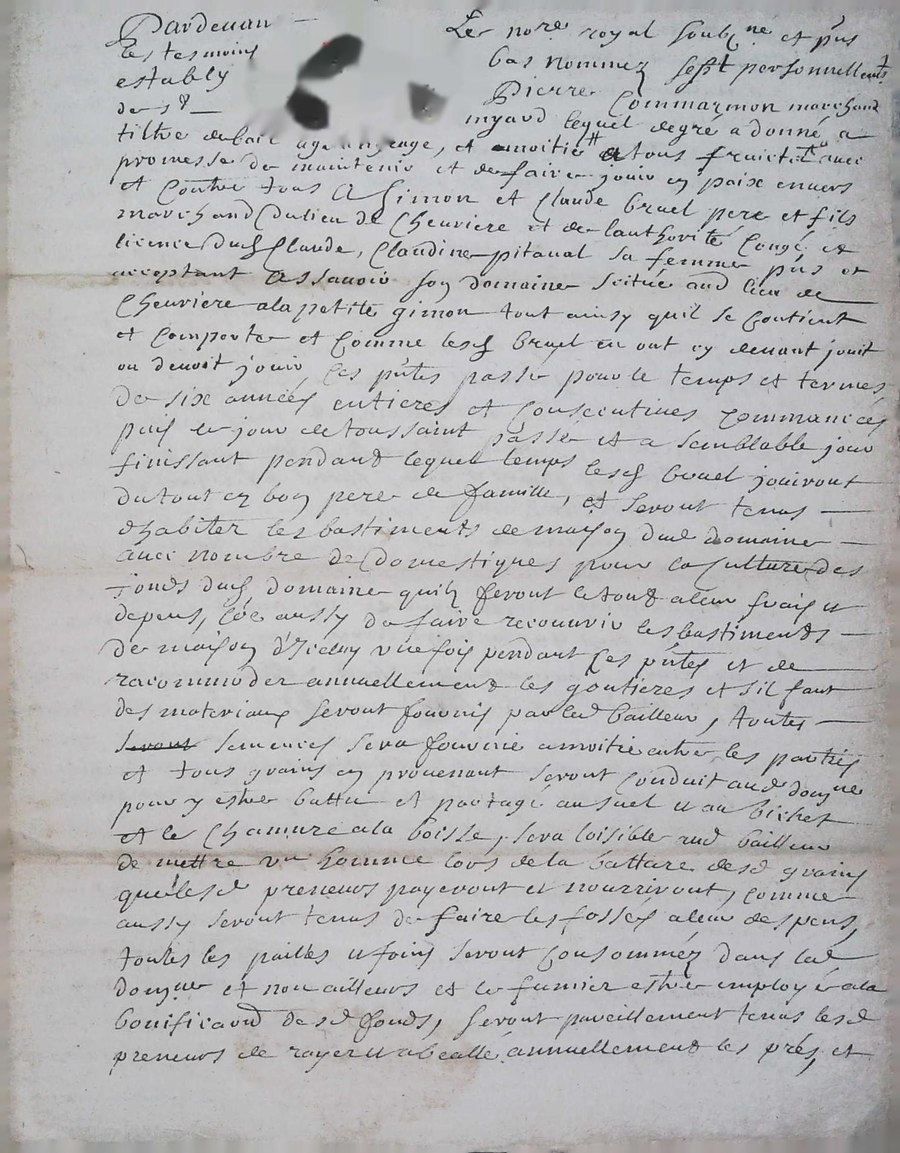 Pardevan Le no.re royal soubz.ne et p.ns
les tesmoins bas nommez, s'est personnellem.t
estably Pierre Commarmon marchand
de s.t myard lequel de gré a donné a
tiltre de bail a grangeage, et a moitié a tous fruictz avec
promesse de maintenir et de faire jouir en paix envers
et contre tous A Simon et Claude bruel pere et fils
marchand du lieu de Cheuriere et de lauthorité Congé et
licence dud Claude, Claudine pitaual sa femme p.ns et
acceptant Assauoir son domaine scitué aud lieu de
Cheuriere a la petite gimon tout ainsy quil se contient
et comporte et comme lesd bruel en ont cy deuant jouit
ou deuoit jouir Ces p.ntes passe pour le temps et termes
de six années entieres et consecutiues commancées
puis le jour de toussaint passé et a semblable jour
finissant pendant lequel temps lesd bruel jouiront
du tout en bon pere de famille, et seront tenus
dhabiter les bastiments de maison dud domaine
auec nombre de domestiques pour la Culture des
fonds dud domaine quilz feront le tout a leur frais et
depens, aussy de faire recouurir les bastiments
de maison d'Iceluy vne fois pendant Ces p.ntes et de
racommoder annuellement les goutieres et sil faut
des materiaux seront fournis par led bailleur, toutes
seront semences sera fournie a moitie entre les parties
et tous grains en prouenant seront Conduit aud dom.ne
pour y estre battu et partagé au suel et au bichet
et le Chanure a la boisse, sera loisible aud bailleur
de mettre vn homme lors de la batture desd grains
que lesd preneurs payeront et nourriront, comme
aussy seront tenus de faire les fossés a leur despens,
toutes les pailles et foins seront consommez dans led
dom.ne et non ailleurs et le fumier estre employé a la
bonificaon desd fonds, seront pareillement tenus lesd
preneurs de rayer et abealle annuellement les prés, et